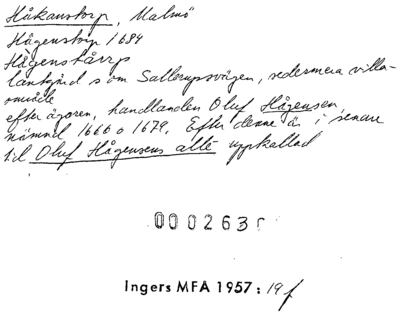 Håkanstorp, Malmö
Hågenstorp 1684
Hågenstårrp
lantgård som Sallerupsvägen, sedermera villa-
område
efter ägaren, handlanden Oluf Hågensen,
nämnd 1666 o 1679. Efter denne är i senare
tid Oluf Hågensens allé uppkallad
000263
Ingers MFA 1957: 19 f